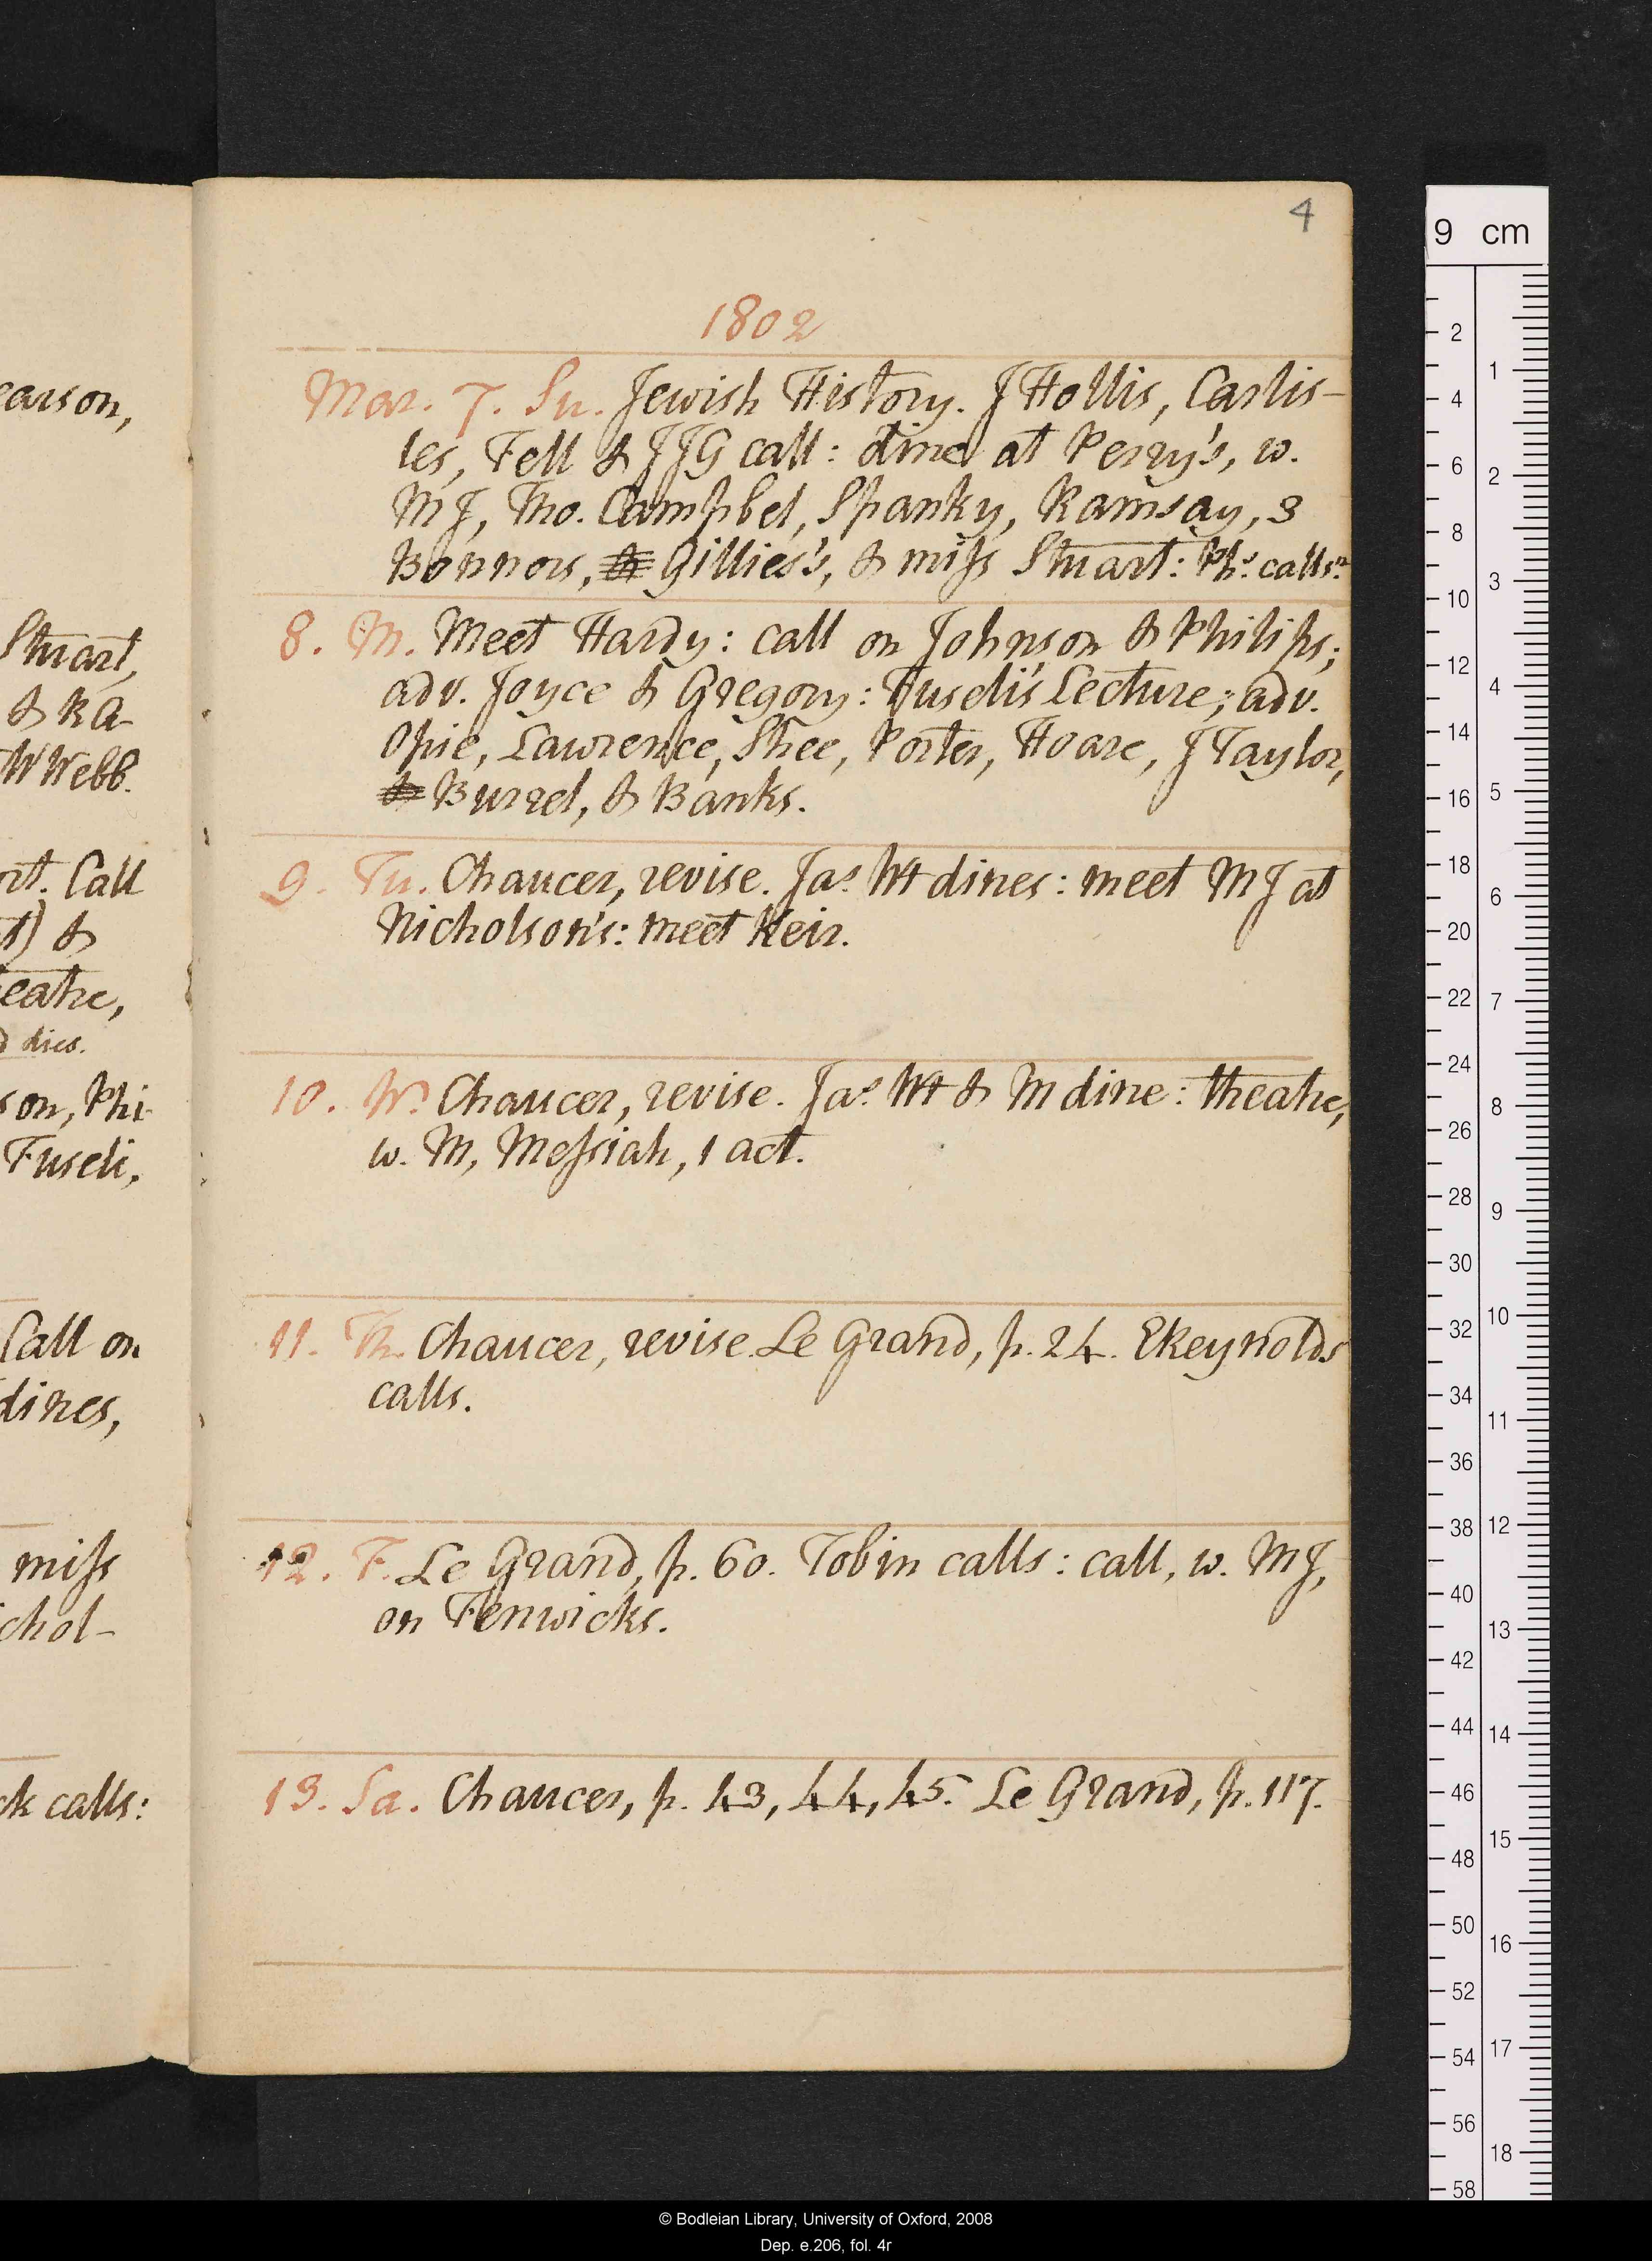 earson,
Stuart,
& RA-
W Webb.
rt. Call
t) &
eatre,
d dies.
son, Phi-
Fuseli,
Call on
dines,
miss
ichol-
ck calls:
4
1802
Mar. 7. Su. Jewish History. J Hollis, Carlis-
les, Fell & JJG call: dine at Perry's, w.
MJ, Tho. Campbel, Spanky, Ramsay, 3
Bonnors, & Gillies's, & miss Stuart: Phs. calls
8. M. Meet Hardy: call on Johnson & Philips;
adv. Joyce & Gregory: Fuseli's Lecture; adv.
Opie, Lawrence, Shee, Porter, Hoare, J Taylor,
& Burrel, & Banks.
9. Tu. Chaucer, revise. Jas. Wt dines: meet MJ at
Nicholson's: meet Keir.
10. W. Chaucer, revise. Jas. Wt & M dine: theatre,
w. M, Messiah, 1 act.
11. Th. Chaucer, revise. Le Grand, p. 24. E Reynolds
calls.
12. F. Le Grand, p. 60. Tobin calls: call, w. MJ,
on Fenwicks.
13. Sa. Chaucer, p. 43, 44, 45. Le Grand, p. 117.
9 cm
2
4
6
8
10
12
14
16
18
20
22
24
26
28
30
32
34
36
38
40
42
44
46
48
50
52
54
56
58
1
2
3
4
5
6
7
8
9
10
11
12
13
14
15
16
17
18
© Bodleian Library, University of Oxford, 2008
Dep. e.206, fol. 4r